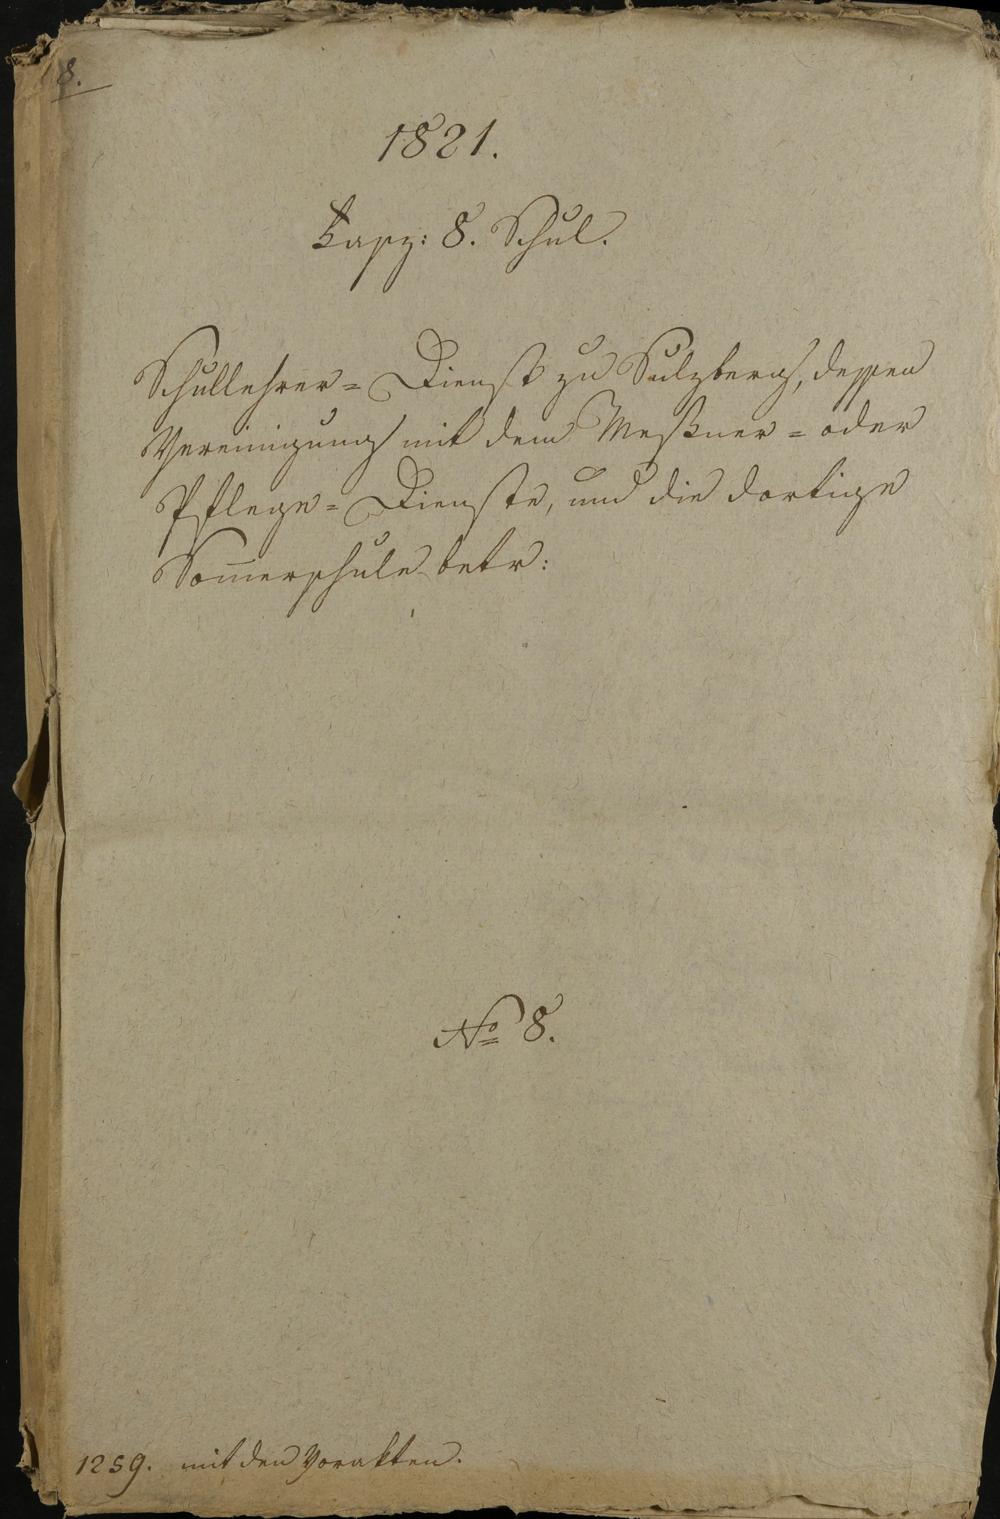 8.
1821.
Fasz: 8. Schul.
Schullehrer= Dienst zu Sulzberg, dessen
Vereinigung mit dem Meßner= oder
Pflege= Dienste, und die dortige
Som̅erschule betr:
No 8.
1259. mit den Vorakten.